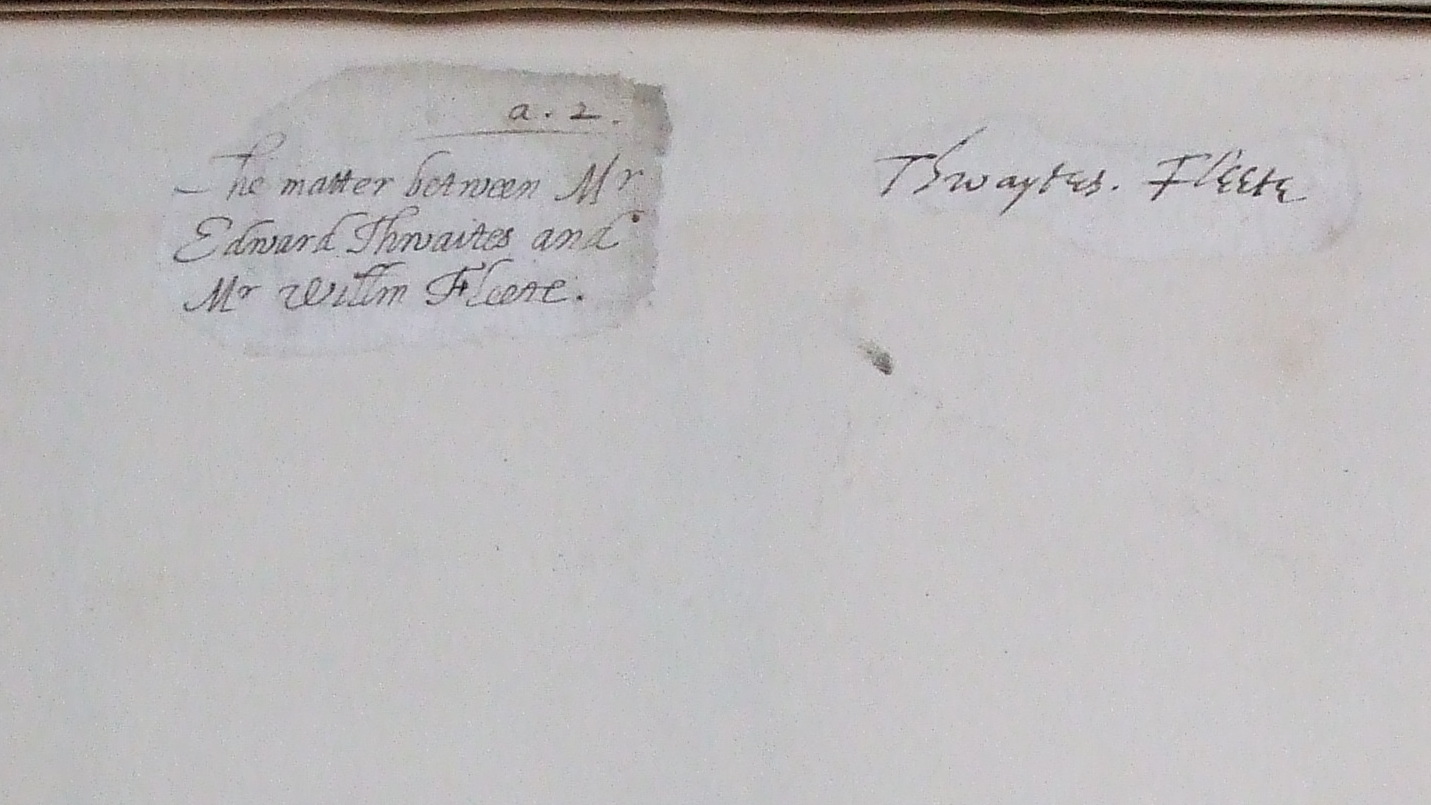 a. 2.
The matter between Mr
Edward Thwaites and
Mr Willm Fleete.
Thwaytes. Fleete